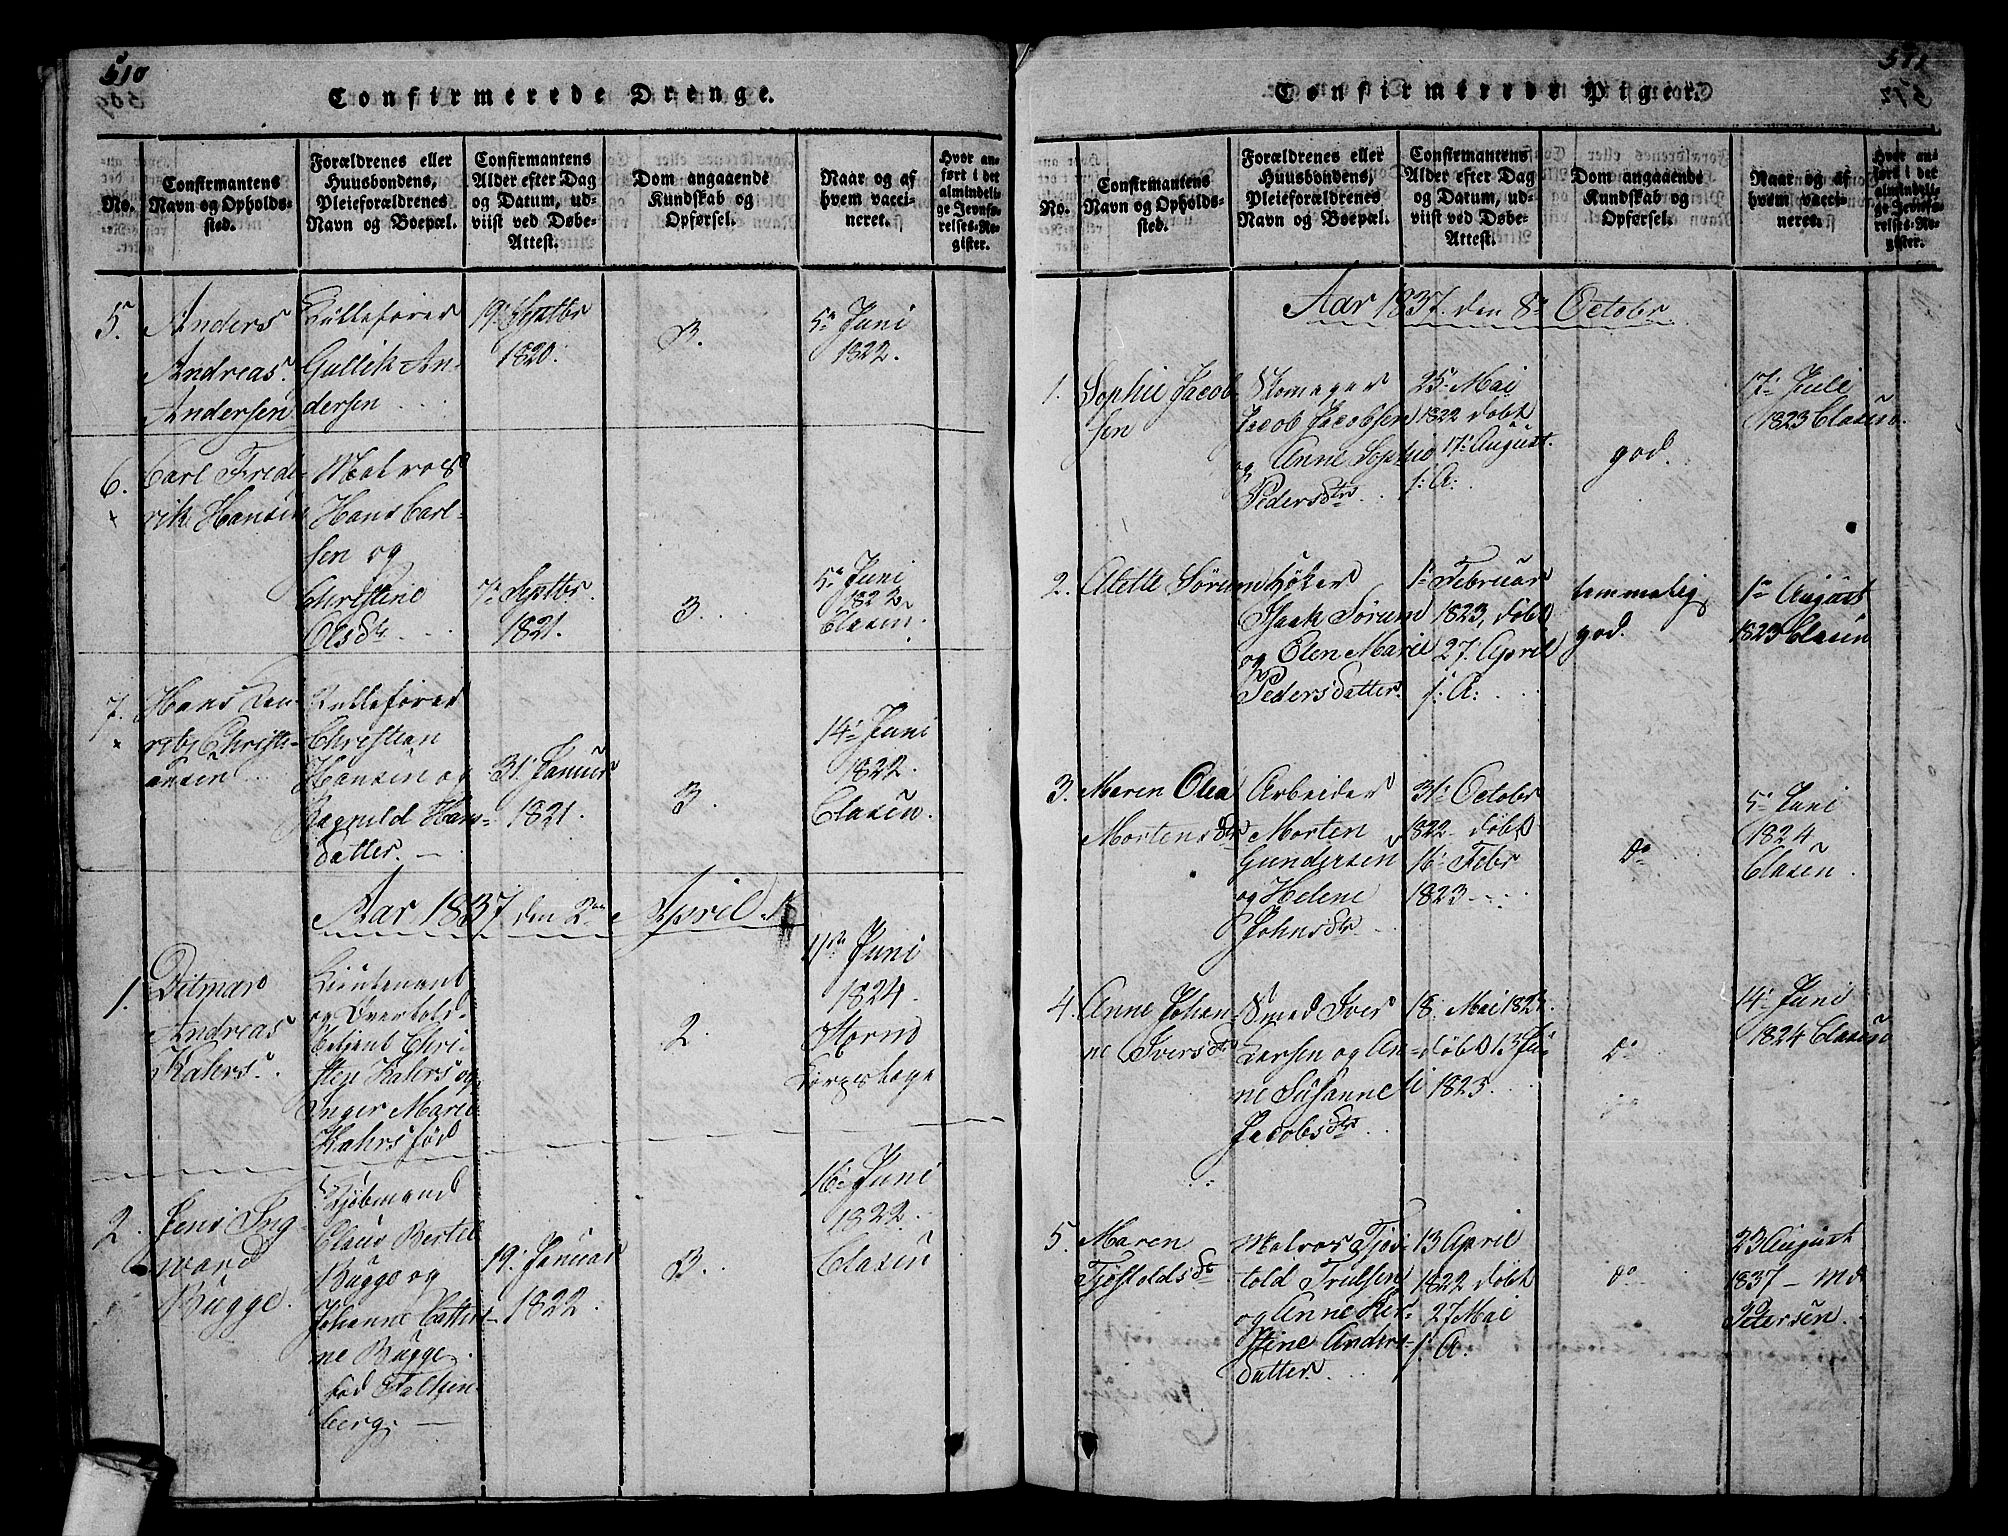 510
Confirmerede Drenge.
No.
Confirmantens
Navn og Opholds-
sted.
Forældrenes eller
Huusbondens,
Pleieforældrenes
Navn og Boepæl.
Confirmantens
Alder efter Dag
og Datum, ud-
viist ved Døbe-
Attest.
Dom angaaende
Kundskab og
Opførsel.
Naar og af
hvem vacci-
neret.
Hvor an-
ført i det
almindeli-
ge Jevnfø-
relses-Re-
gister.
5.
Anders
Andreas
Andersen
Gullik An-
dersen
19. Septbr
1820.
3.
5te Juni
1822.
6.
Carl Frede-
rik Hansen
Matros
Hans Carl-
sen og
Christine
Olsdtr
7. Septbr.
1821.
3.
5te Juni
1822
Clasen
7.
Hans Hen-
rik Christi-
ansen
Christian
Hansen og
Ragnild Hans-
datter.
31. Januar
1821.
3.
14. Juni
1822.
Clasen.
Aar 1837 den 2den April
1.
Ditmar
Andreas
Kahrs.
Lieutenant
og Overtold-
betjent Chri-
sten Kahrs og
Inger Marie
Kahrs fød
2.
11te Juni
1824.
2.
Jens Ing-
ward
Bugge.
Kjøbmand
Claus Bertel
Bugge og
Johanne Cathri-
ne Bugge
fød Falken-
berg.
19. Januar
1822.
3.
16. Juni
1822.
Clasen
511
Confirmerede Piger.
No.
Confirmantens
Navn og Opholds-
sted.
Forældrenes eller
Huusbondens,
Pleieforældrenes
Navn og Boepæl.
Confirmantens
Alder efter Dag
og Datum, ud-
viist ved Døbe-
Attest.
Dom angaaende
Kundskab og
Opførsel.
Naar og af
hvem vacci-
neret.
Hvor an-
ført i det
almindeli-
ge Jevnfø-
relses-Re-
gister.
Aar 1837. den 8de Octobr
1.
Sophie Jacob-
sen
Skomager
Jacob Jacobsen
og Anne Sophie
Pedersdtr
25. Mai
1822 døbt
17. August.
f: A:
god.
17. Juli
1823 Clasen.
2.
Alette Sørum
Høker
Isaak Sørum
og Olen Marie
Pedersdatter.
1. Februar
1823, døbt
27. April
f: A:
temmelig
god.
1te August
1823 Clasen
3.
Maren Olea
Mortensdtr
Arbeider
Morten
Gundersen
og Helene
Johnsdtr
31. Octobr
1822 døbt
16. Febr
1823
do
5te Juni
1824
Clasen.
4.
Anne Johan-
ne Iversdtr
Smed Iver
Larsen og An-
ne Susanne
Jacobsdtr
18. Mai 1823.
døbt 13 Ju-
li 1823.
do
14. Juni
1824 Clasen
5.
Maren
Tjøstoldsdtr
Matros Tjøs-
told Trulsen
og Anne Kir-
stine Anders-
datter.
13 April
1822 døbt
27 Mai
f: A.
do
23 August
1837 – Md
Petersen.